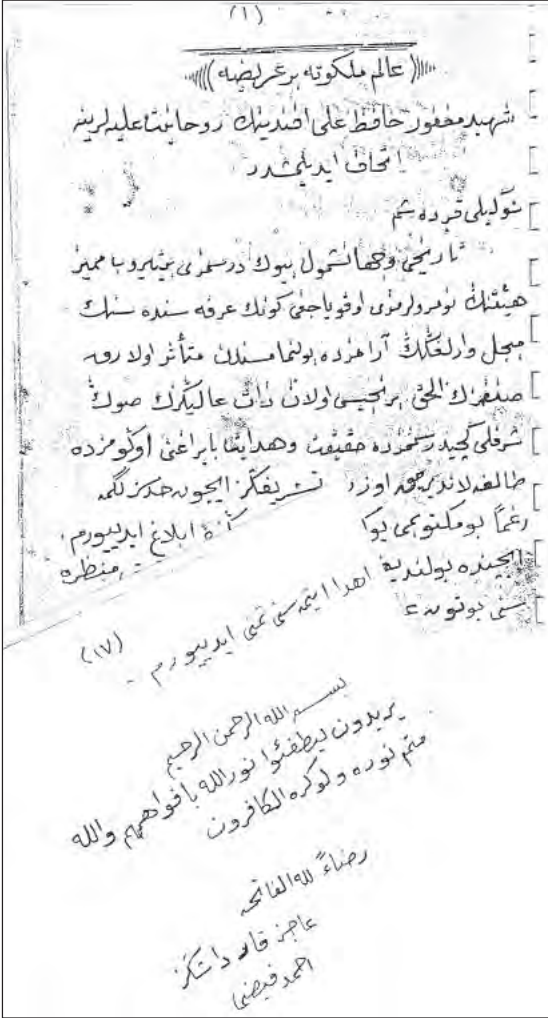 (١)
عالم ملكوته بر عريضه
شهيد مغفور حافظ على افندينك روحانيت عليه لرينه
اتحاف ايديلمشدر
سوكيلى قرده شم
تاريخى وجهانشمول بيوك درسمزى
هيئتنك نومرولرمزى اوقوياجغى كونك عرفه سنده سنك
مبجل وارلغكك آرامزده بولنمامسندن متأثر اولارق
صنفمزك الحق برنجيسى اولان ذات عاليكزك صوك
شرفلى كچيد رسممزده حقيقت وهدايت بايراغنى اوكومزده
طالغه لانديرمق اوزره تشريفكز ايچون حدمز لكمه
رغماً بو مكتوبمى ابلاغ ايدييورم
ايچنده بولنديغ منظره
سنى بوتون
اهدا ايتمه سنى تمنى ايدييورم -
(١٧)
بسم الله الرحمن الرحيم
يريدون ليطفئوا نور الله بافواههم والله
متم نوره ولو كره الكافرون
رضاءً لله الفاتحه
عاجز قارداشكز
احمد فيضى